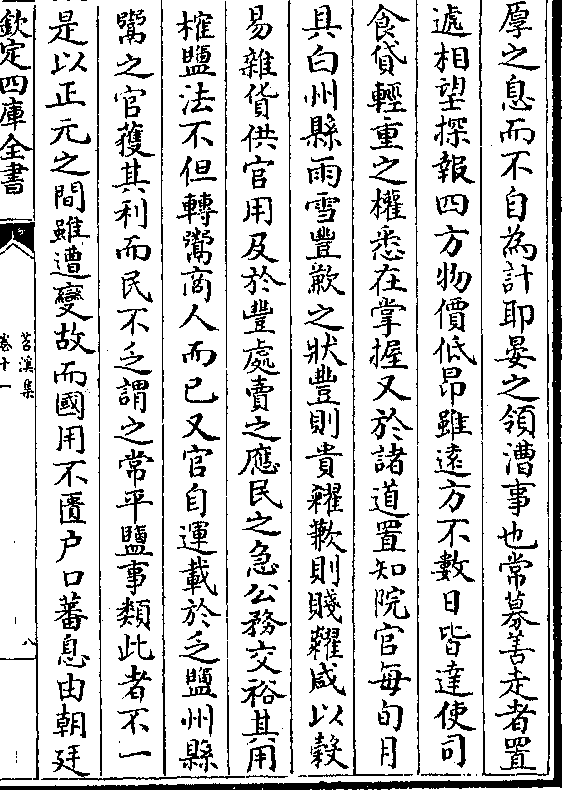 厚之息而不自為計耶晏之領漕事也常募善走者置
逓相望探報四方物價低昂雖遠方不數日皆達使司
食貨輕重之權悉在掌握又於諸道置知院官每旬月
具白州縣雨雪豐歉之狀豐則貴糴歉則賤糶或以穀
易雜貨供官用及於豐處賣之應民之急公務交裕其用
榷鹽法不但轉鬻商人而已又官自運載於乏鹽州縣
鬻之官獲其利而民不乏謂之常平鹽事類此者不一
是以正元之間雖遭變故而國用不匱户口蕃息由朝廷
欽定四庫全書
苕溪集
卷十一
八